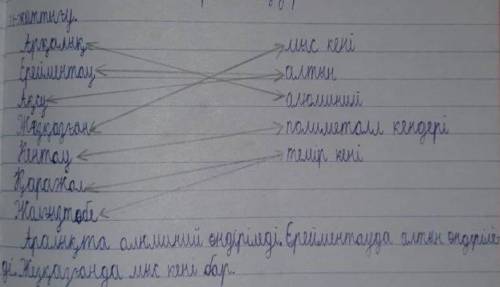 1-жаттығу.
Арқалық мыс кені
Ерейментау алтын
Ақсу алюминий
Жезқазған полиметалл кендері
Кентау темір кені
Қаражал
Жолымбет
Арқалықта алюминий өндіріледі. Ерейментауда алтын өндіріле-
ді. Жезқазғанда мыс кені бар.